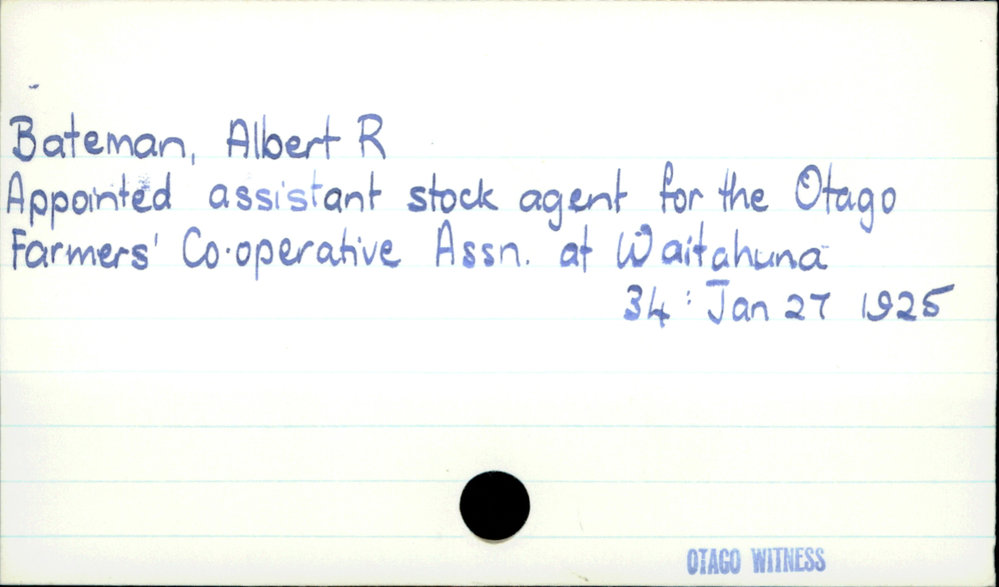 Bateman, Albert R
Appointed assistant stock agent for the Otago
Farmers' Co-operative Assn. at Waitahuna
34: Jan 27 1925
OTAGO WITNESS